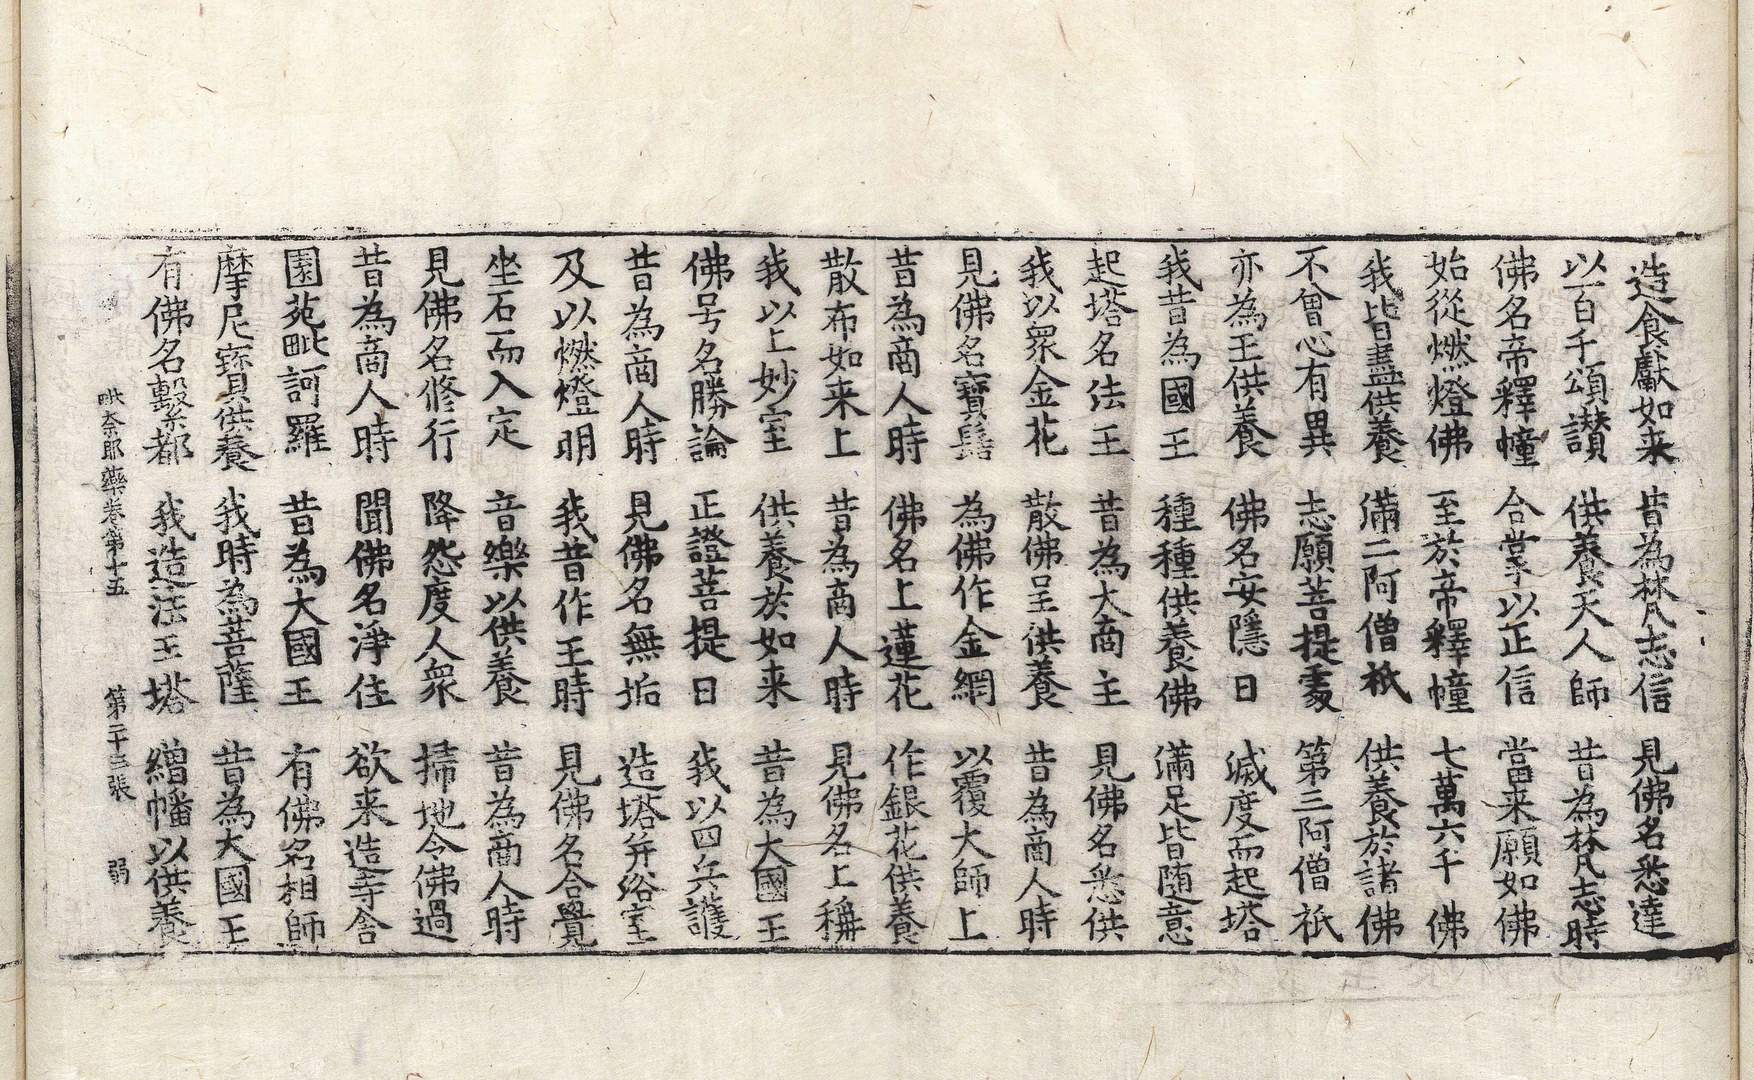 造食獻如来 昔為梵志信 見佛名悉達
以百千頌讃 供養天人師 昔為梵志時
佛名帝釋幢 合掌以正信 當来願如佛
始從燃燈佛 至於帝釋幢 七萬六千佛
我皆盡供養 滿二阿僧祇 供養於諸佛
不曾心有異 志願菩提處 第三阿僧祇
亦為王供養 佛名安隱日 滅度而起塔
我昔為國王 種種供養佛 滿足皆随意
起塔名法王 昔為大商主 見佛名悉供
我以衆金花 散佛呈供養 昔為商人時
見佛名寶髻 為佛作金網 以覆大師上
昔為商人時 佛名上蓮花 作銀花供養
散布如来上 昔為商人時 見佛名上稱
我以上妙室 供養於如来 昔為大國王
佛号名勝論 正證菩提日 我以四兵護
昔為商人時 見佛名無垢 造塔并浴室
及以燃燈明 我昔作王時 見佛名合覺
坐石而入定 音樂以供養 昔為商人時
見佛名修行 降怨度人衆 掃地令佛過
昔為商人時 聞佛名淨住 欲来造寺舍
園苑毗訶羅 昔為大國王 有佛名相師
摩尼寶供養 我時為菩薩 昔為大國王
有佛名繫都 我造法王塔 繒幡以供養
毗奈耶藥卷第十五 第二十三張 弱